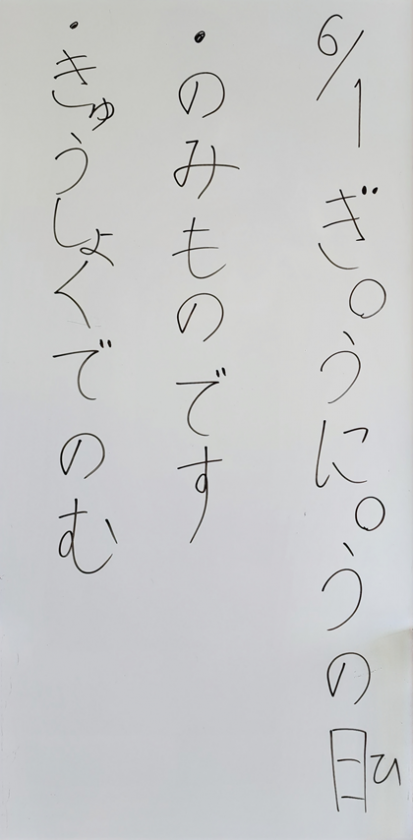 6/1 ぎ○うに○うの日ひ
・のみものです
・きゅうしょくでのむ